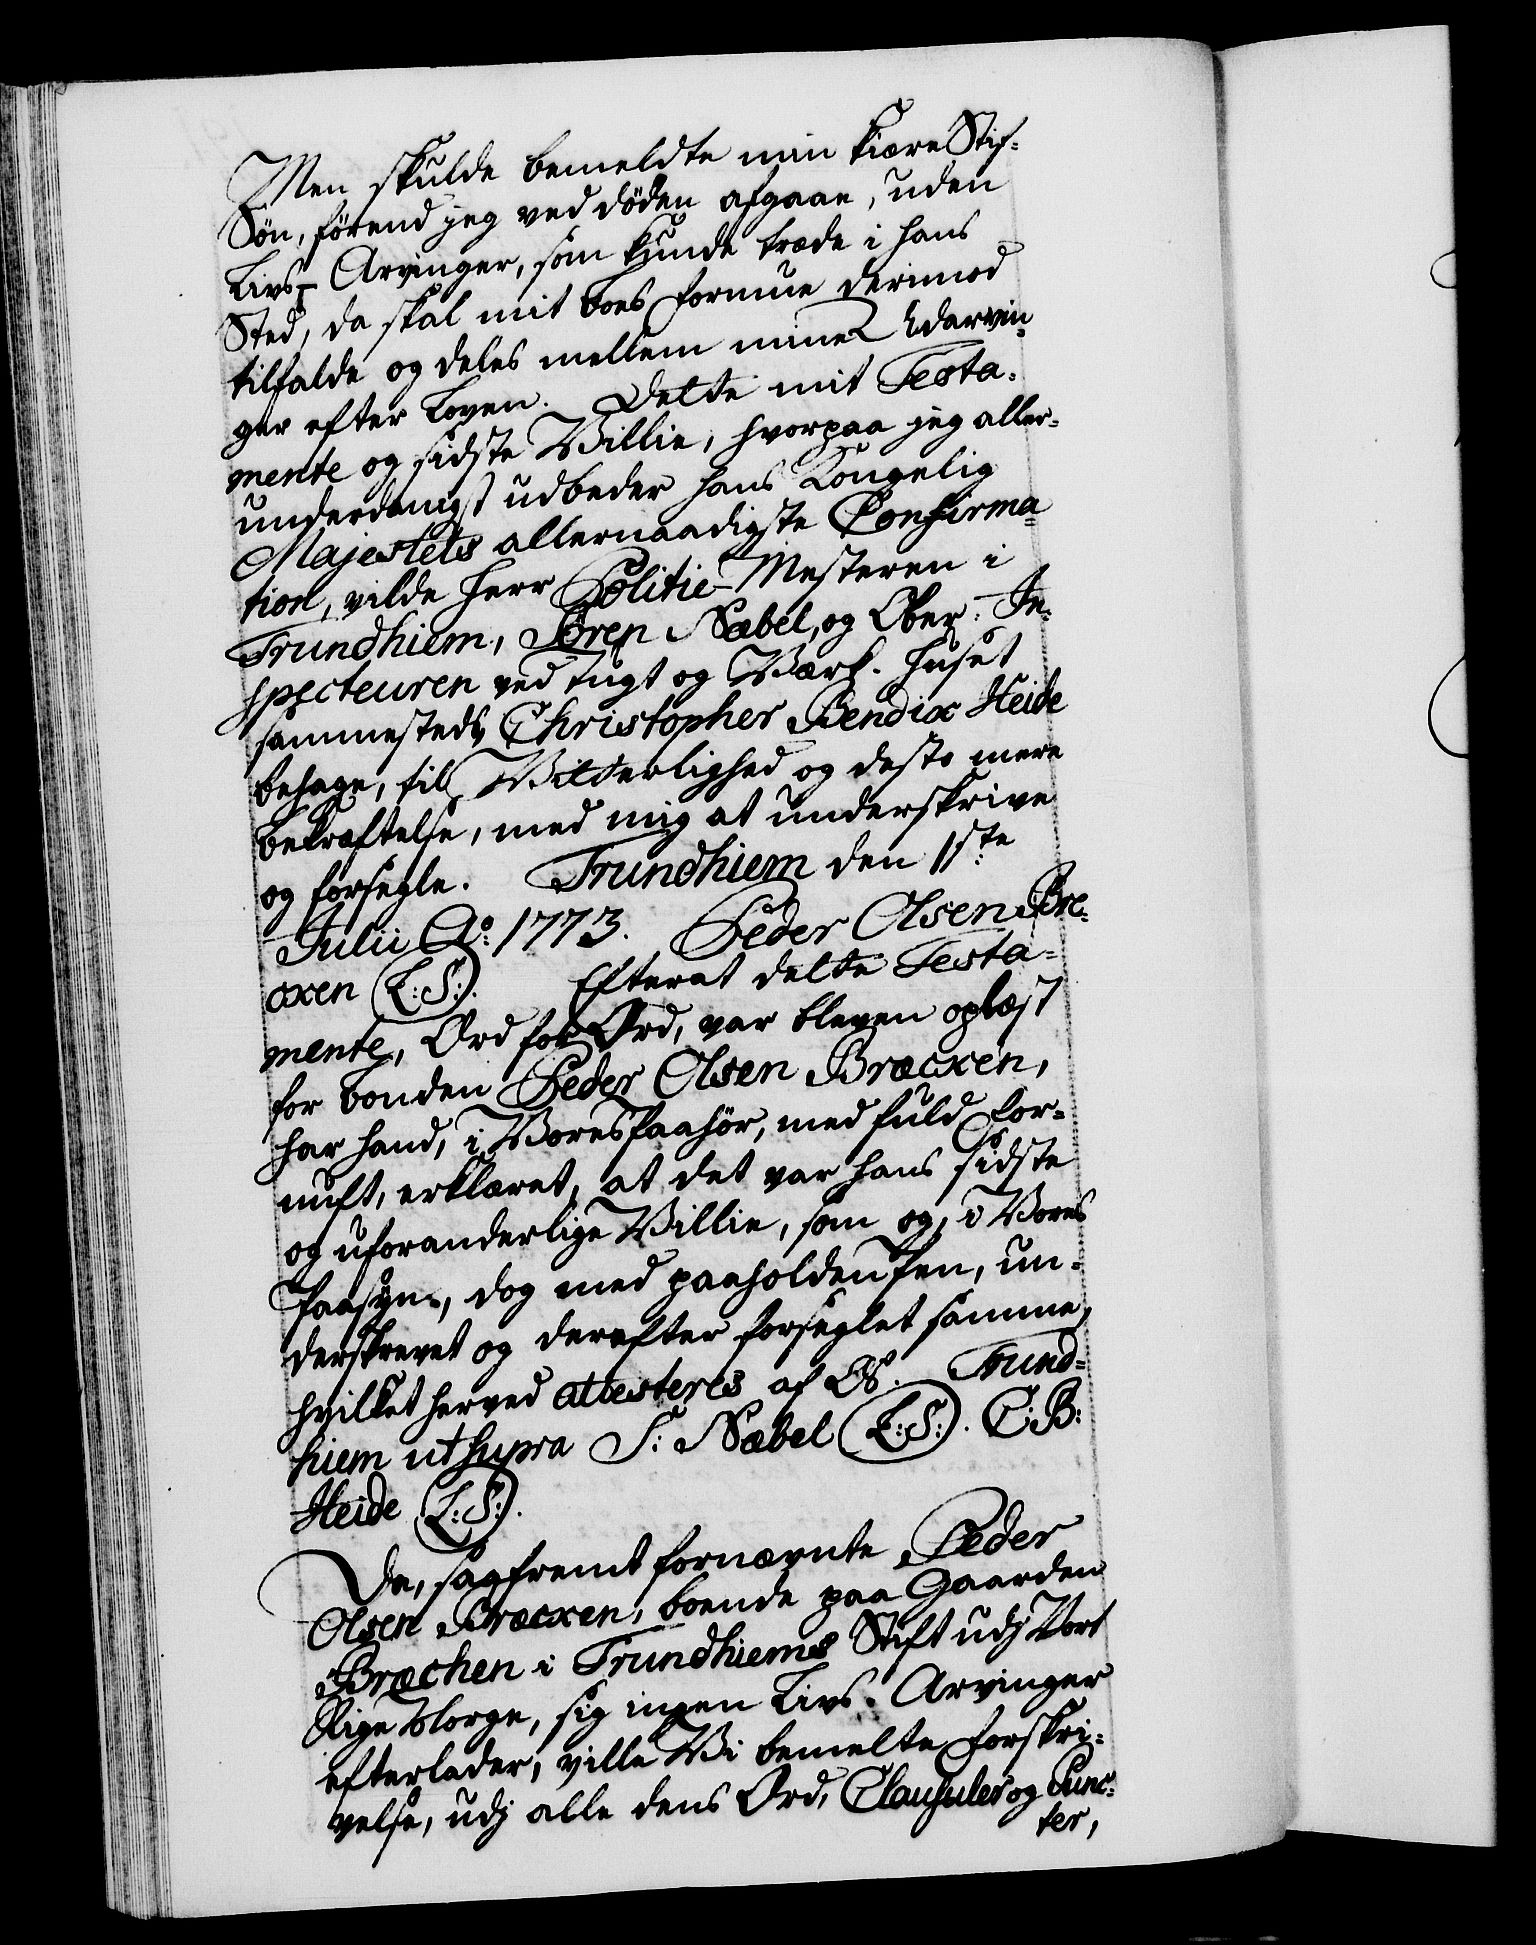 Men skulde bemeldte min kiære Stif-
Søn, førend jeg ved døden afgaae, uden
Livs-Arvinger, som kunde træde i hans
Sted, da skal mit Boes formue derimod
tilfalde og deles mellem mine Udarvin-
ger efter Loven. Dette mit Testa-
mente og sidste Villie, hvorpaa jeg aller-
underdanigst udbeder hans Kongelig
Majestets allernaadigste Confirma-
tion, vilde herr Politie-Mesteren i
Trundhiem, Søren Næbel, og Ober-In-
specteuren ved Tugt og Værk-huset
sammesteds Christopher Bendix Heide
behage, til Vitterlighed og desto mere
bekræftelse, med mig at underskrive
og forsegle. Trundhiem den 11ste
Julii Ao: 1773. Peder Olsen Bræ-
cxen (L:S:). Efterat dette Testa-
mente, Ord for Ord, var bleven oplæst
for bonden Peder Olsen Bræcxen,
har hand, i Vores Paahør, med fuld For-
nuft, erklæret, at det var hans sidste
og uforanderlige Villie, som og, i Vores
Paasyn, dog med paaholden Pen, un-
derskrevet og derefter forseglet samme,
hvilket herved attesteres af Os. Trund-
hiem ut supra S: Næbel (L:S:). C:B:
Heide (L:S:).
Da, saafremt fornævnte Peder
Olsen Bræcxen, boende paa Gaarden
Bræchen i Trundhiems Stift udj Vort
Rige Norge, sig ingen Livs-Arvinger
efterlader, ville Vi bemelte forskri-
velse, udj alle dens Ord, Clausuler og Punc-
ter,